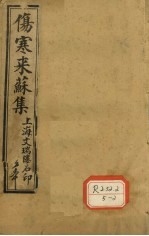 傷寒来蘇集
上海文瑞樓石印
R222.2
5-2